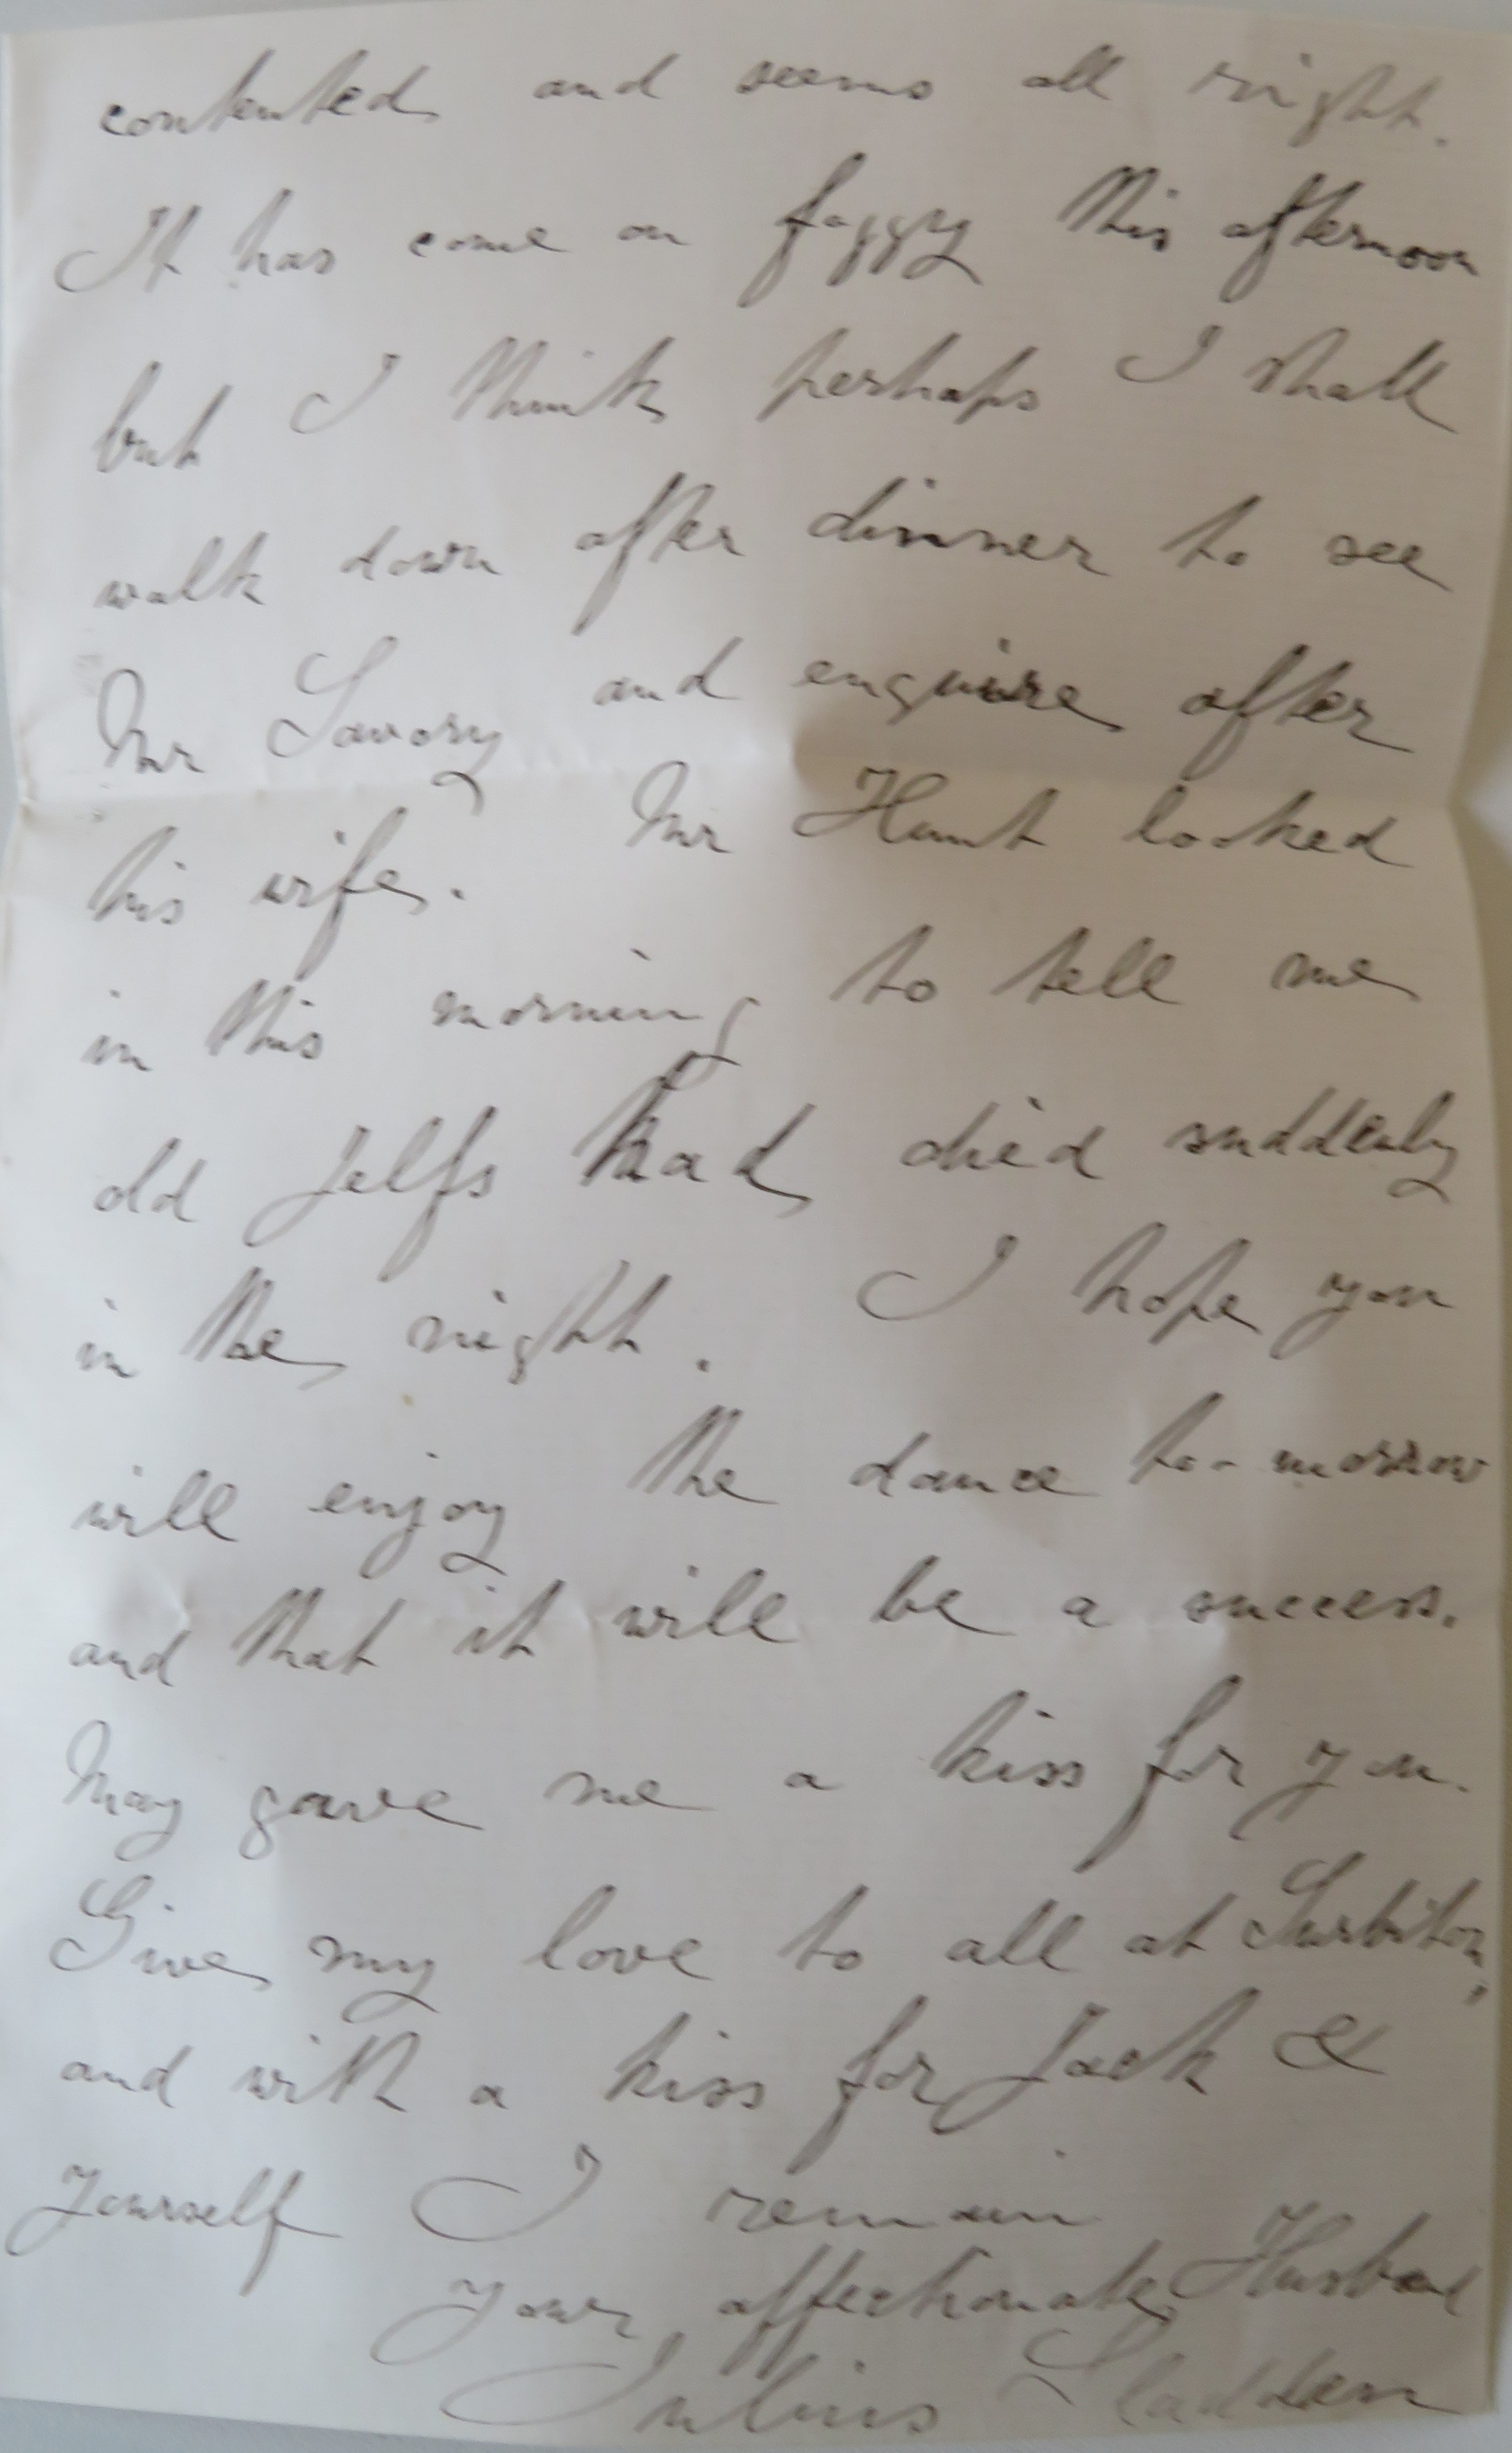 contented and seems all right.
It has come on foggy this afternoon
but I think perhaps I shall
walk down after dinner to see
Mr Savory and enquire after
his wife. Mr Hunt looked
in this morning to tell me
old Jelfs had died suddenly
in the night. I hope you
will enjoy the dance to-morrow
and that it will be a success.
May gave me a kiss for you.
Give my love to all at Surbiton,
and with a kiss for Jack &
yourself I remain
Your affectionate Husband
Julius Sladden